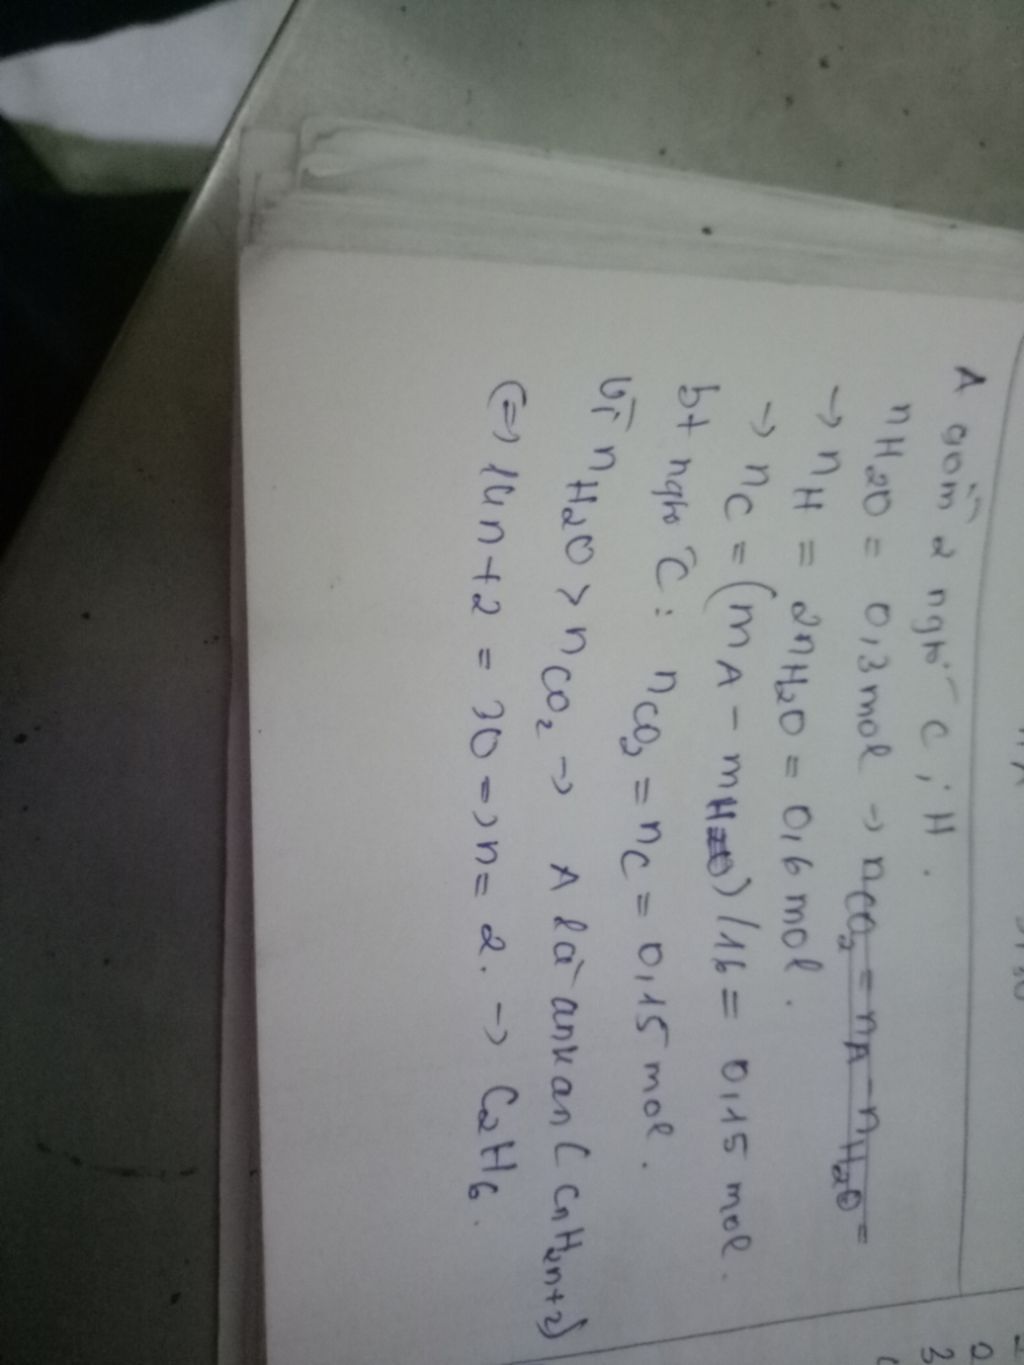 A gồm 2 ngtử C, H.
nH2O = 0,3 mol → nCO2 = nA - nH2O =
→ nH = 2nH2O = 0,6 mol.
→ nC = (mA - mH) / 16 = 0,15 mol.
bt ngtử C: nCO2 = nC = 0,15 mol.
Vì nH2O > nCO2 → A là ankan (CnH2n+2)
(=) 14n+2 = 30 => n = 2. → C2H6.